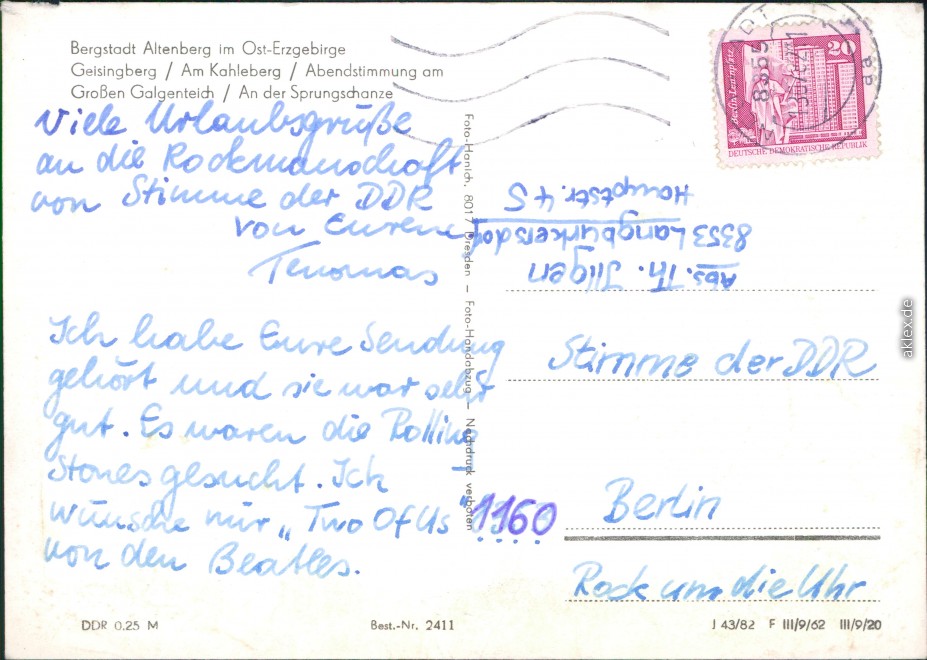 Bergstadt Altenberg im Ost-Erzgebirge
Geisingberg / Am Kahleberg / Abendstimmung am
Großen Galgenteich / An der Sprungschanze
Viele Urlaubsgrüße
an die Rockmanschaft
von Stimme der DDR
von Eurem
Thomas
Ich habe Eure Sendung
gehört und sie war sehr
gut. Es waren die Rolling
Stones gesucht. Ich
wünsche mir „Two Of Us"
von den Beatles.
DDR 0.25 M
Best.-Nr. 2411
Foto-Hanich, 8017 Dresden – Foto-Handabzug – Nachdruck verboten
20
DEUTSCHE DEMOKRATISCHE REPUBLIK
Abs. Th. Jllgen
8353 Langburkersdorf
Hauptstr. 45
Stimme der DDR
1160
Berlin
Rock um die Uhr
J 43/82 F III/9/62 III/9/20
aklex.de